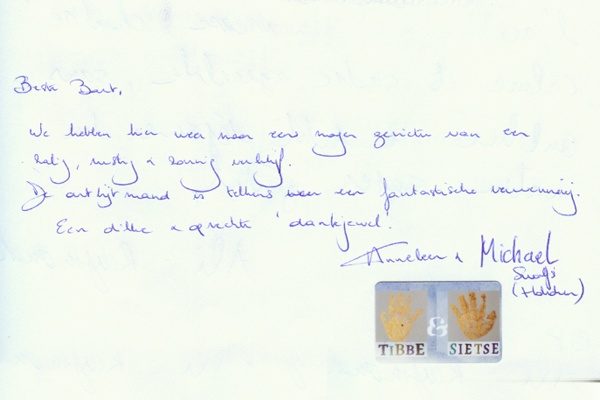 Beste Bart,
We hebben hier weer maar eens mogen genieten van een
zalig, rustig & zonnig verblijf.
De ontbijtmand is telkens weer een fantastische verwennerij.
Een dikke & oprechte 'dankjewel'.
Anneleen & Michael
TiBBE & SIETSE